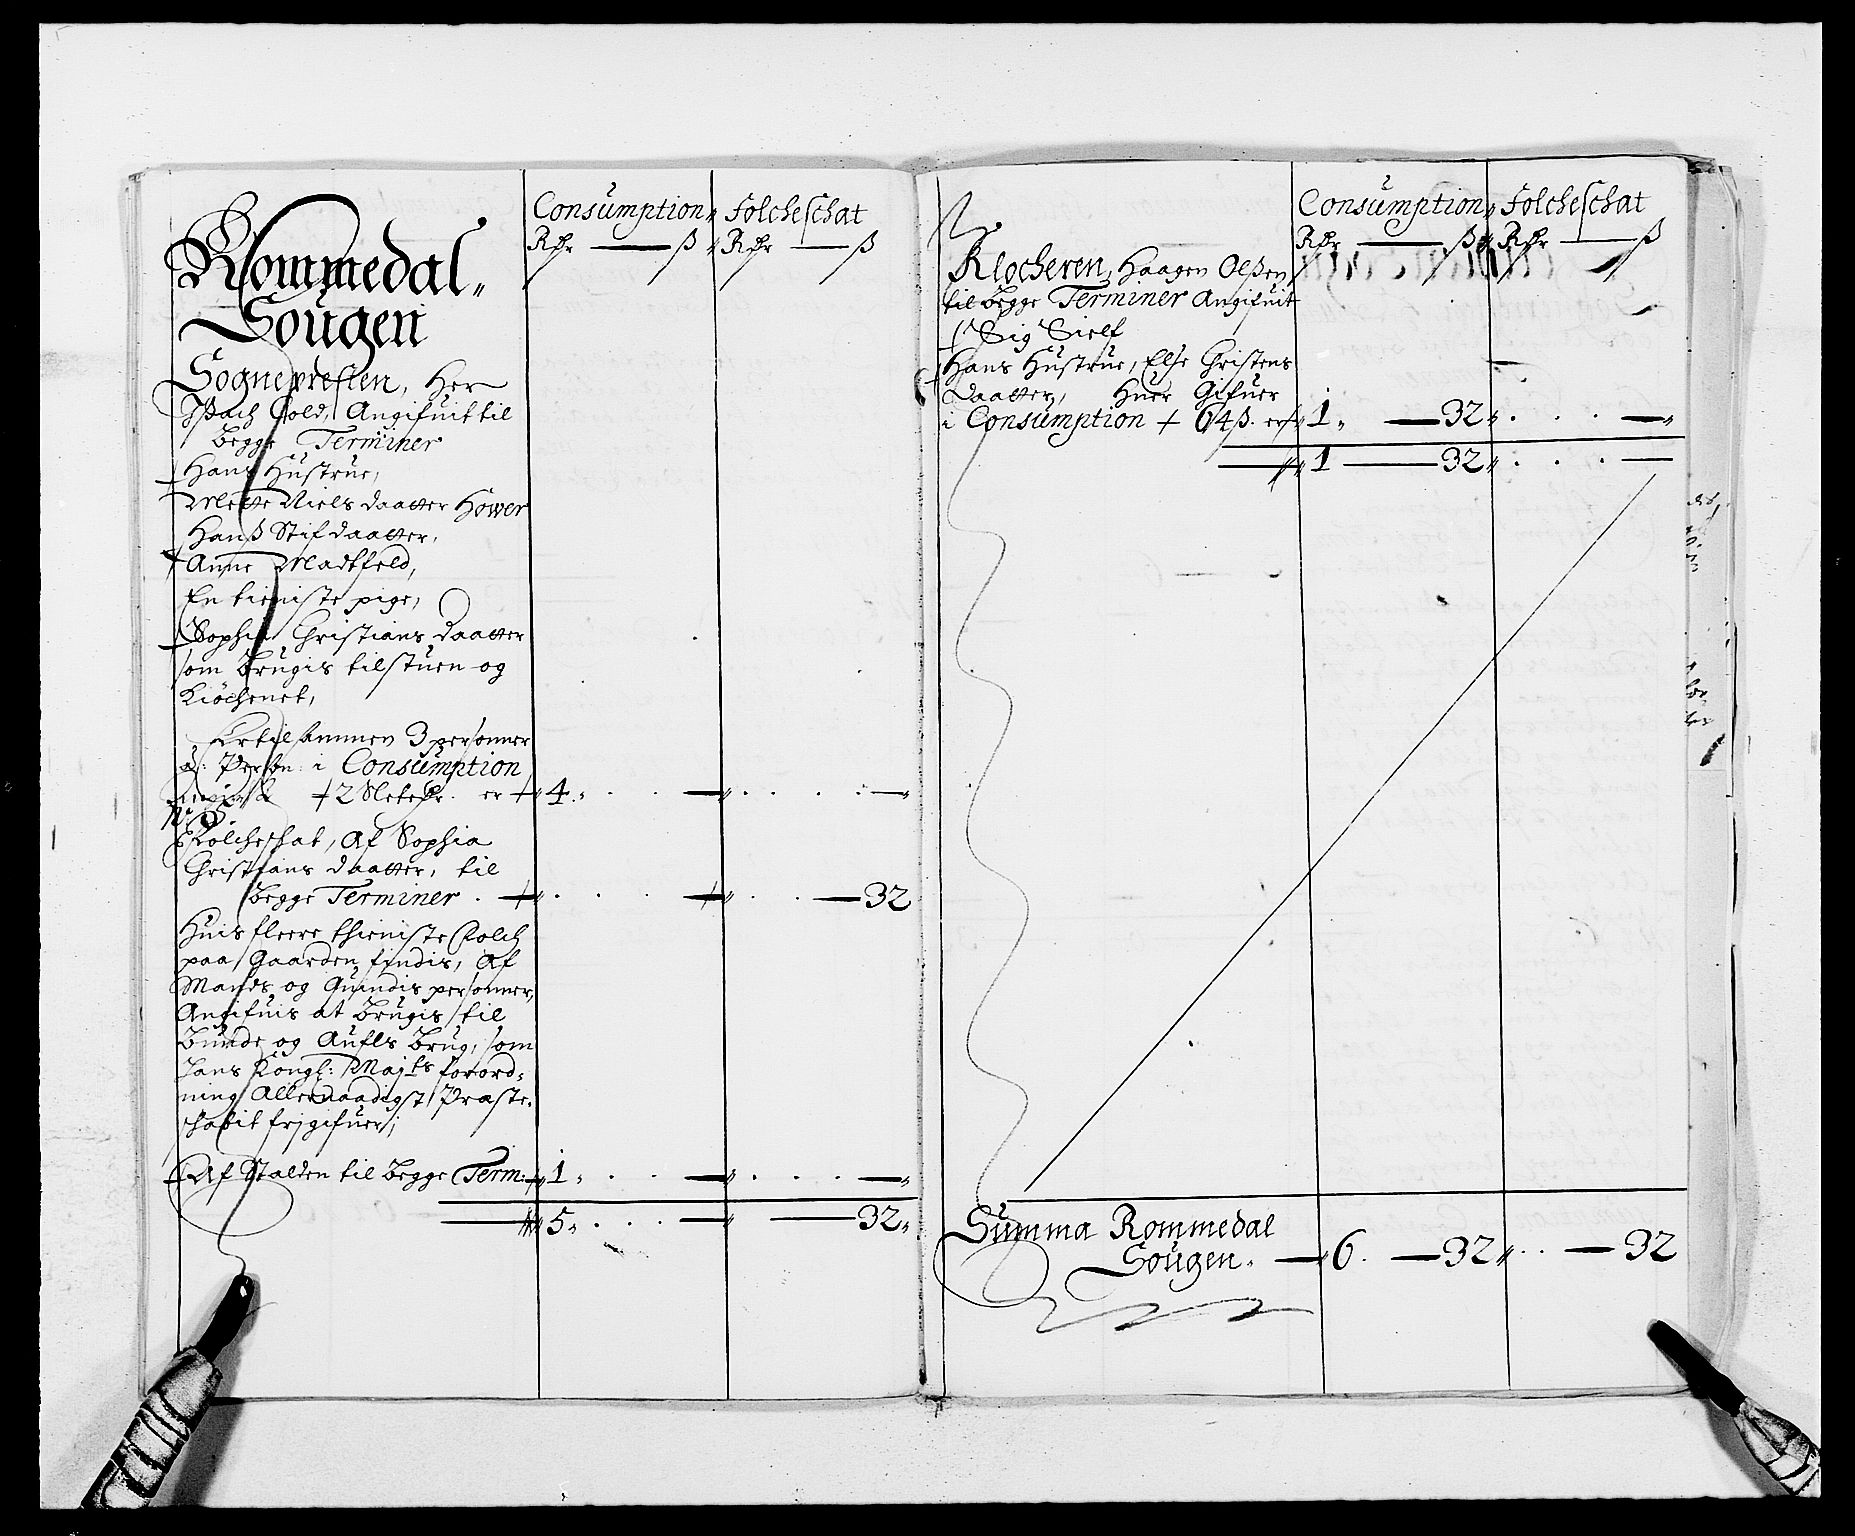 Consumption Folcheschat
Rdr ß Rdr ß
Rommedal
Sougen
Sognepresten, Her
Ißach Cold, Angifuit til
Begge Terminer
Hans Hustrue,
Mette Niels daatter Höwer
Hanß Stifdaatter,
Anne Madtfeld,
En tieniste pige,
Sophia Christians daatter
som Brugis til stuen og
Kiöchenet,
Er tilsammen 3 personner
a: Person: i Consumption
2 Slete dr. er 4
Folcheschat, Af Sophia
Christians daatter, til
Begge Terminer 32
Huis fleere thieniste Folch
paa Gaarden findis, Af
Mands og Quindis personner,
Angifuis at Brugis til
Bunde og Aufls Brug, som
Hans Kongl: Majts forord-
ning Allernaadigst Præste-
schabit frjgifuer;
Af Stalden til Begge Term: 1
5 32
Consumption Folcheschat
Rdr ß Rdr ß
Klocheren, Haagen Olßen
til Begge Terminer Angifuit
Sig Sielf
Hans Hustrue, Else Christens
Daatter, Huer Gifuer
i Consumption 64 ß. er 1 32
1 32
Summa Rommedal
Sougen. 6. 32 32